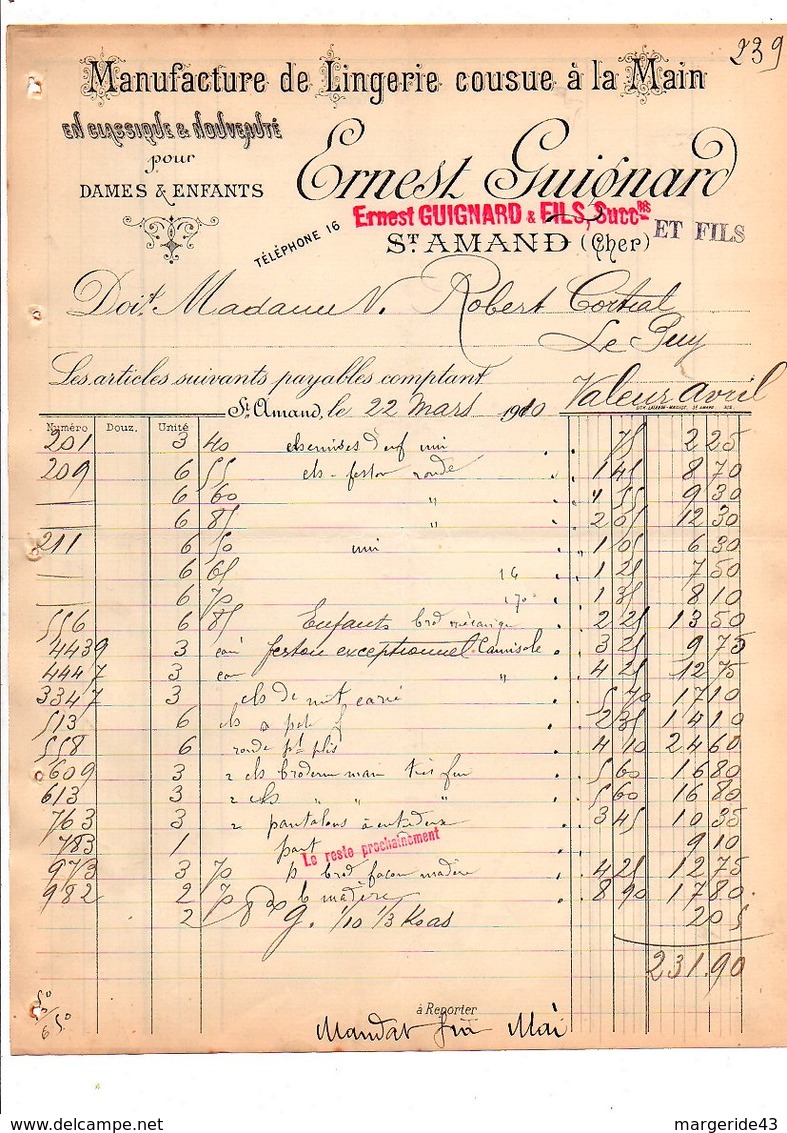 239
Manufacture de Lingerie cousue à la Main
EN CLASSIQUE & NOUVEAUTÉ
pour
DAMES & ENFANTS
Ernest Guignard
Ernest GUIGNARD & FILS, Succrs
ET FILS
TÉLÉPHONE 16
ST AMAND (Cher)
Doit Madame N. Robert Cortial
Le Puy
Les articles suivants payables comptant
Valeur avril
St Amand, le 22 Mars 1910
Numéro Douz. Unité
201 3 40 chemises uni 75 2 25
209 6 55 feston ronde 1 45 8 70
— 6 60 " 1 55 9 30
— 6 85 " 2 05 12 30
211 6 50 uni 1 05 6 30
— 6 65 1 25 7 50
— 6 70 1 35 8 10
556 6 85 Enfants brod mécanique 2 25 13 50
4439 3 feston exceptionnel Camisole 3 25 9 75
4447 3 " 4 25 12 75
3347 3 de nuit carré 5 70 17 10
513 6 2 35 14 10
558 6 ronde plis 4 10 24 60
609 3 broderie main très fin 5 60 16 80
613 3 " " " 5 60 16 80
763 3 pantalons 3 45 10 35
783 1 pant 9 10
Le reste prochainement
973 3 70 brod façon madère 4 25 12 75
982 2 70 madère 8 90 17 80
2 G. 1/10 1/3 Kos 2 05
231.90
à Reporter
Mandat fin Mai
margeride43